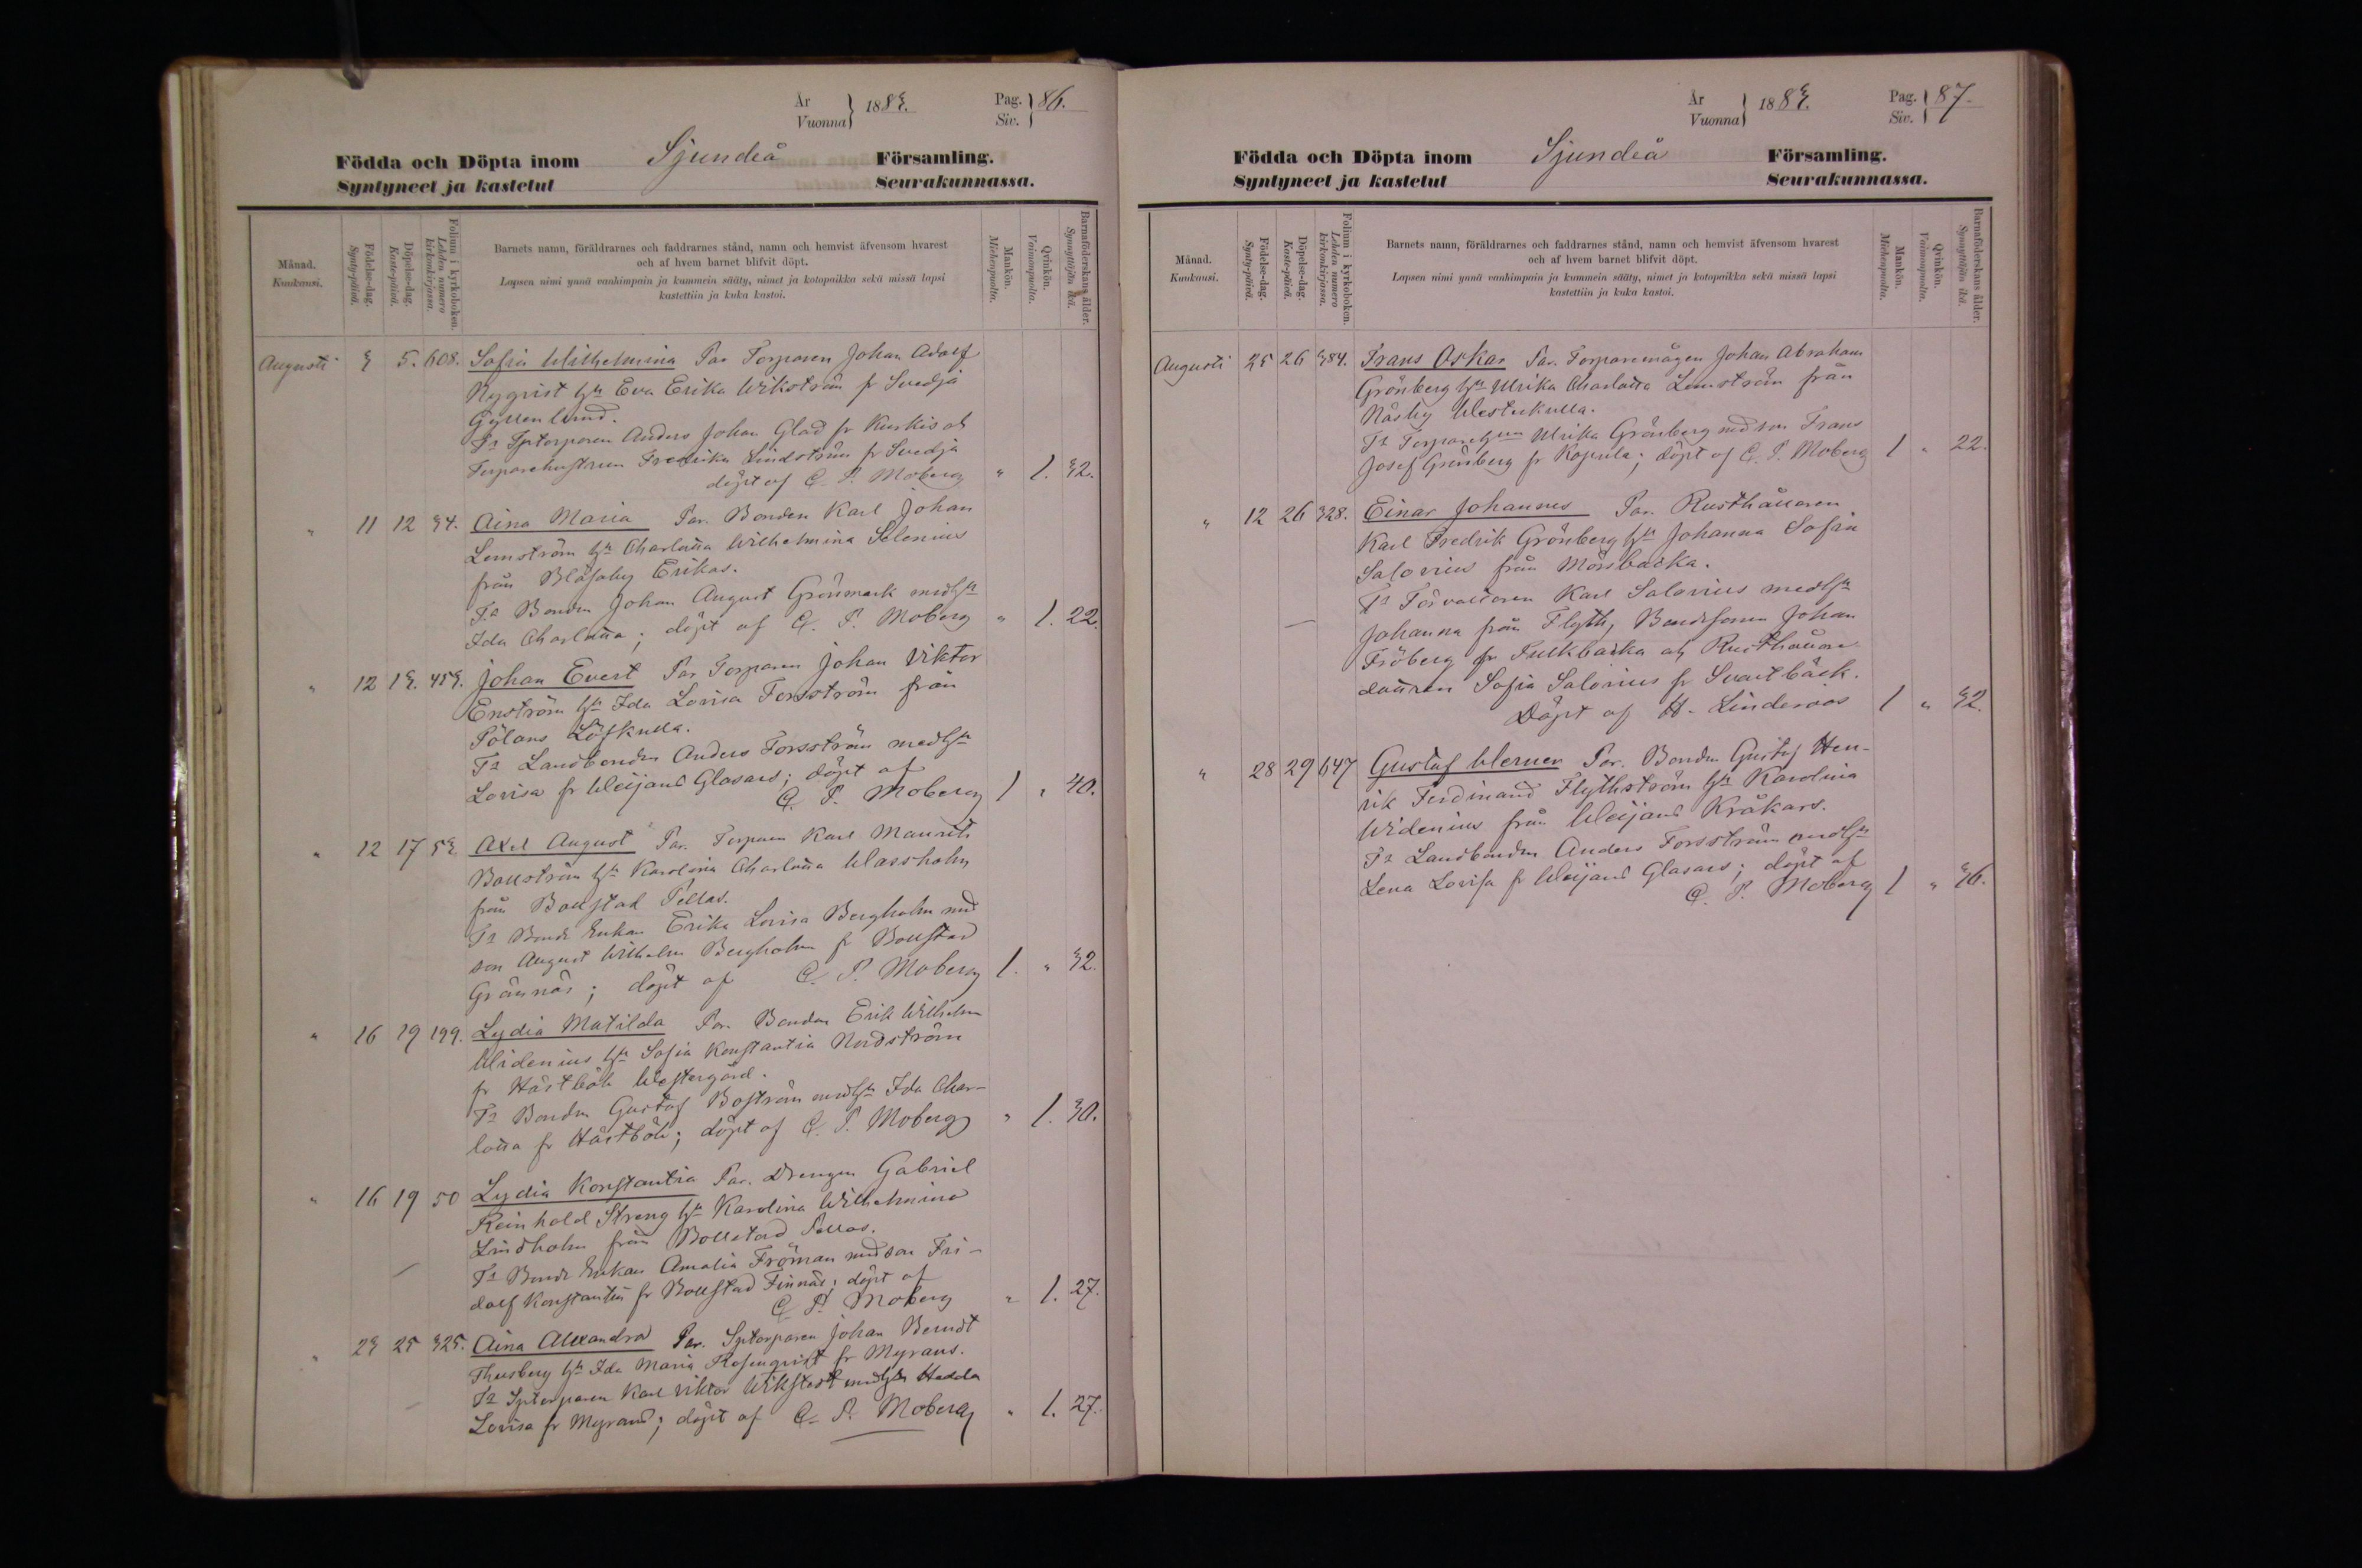 År
Vuonna
1883.
Pag.
Siv.
86.
Födda och Döpta inom Sjundeå Församling.
Syntyneet ja kastetut Seurakunnassa.
Månad.
Kuukausi.
Födelse-dag.
Synty-päivä.
Döpelse-dag.
Kaste-päivä.
Folium i kyrkoboken.
Lehden numero
kirkonkirjassa.
Barnets namn, föräldrarnes och faddrarnes stånd, namn och hemvist äfvensom hvarest
och af hvem barnet blifvit döpt.
Lapsen nimi ynnä vanhimpain ja kummein sääty, nimet ja kotopaikka sekä missä lapsi
kastettiin ja kuka kastoi.
Mankön.
Miehenpuolta.
Qvinkön.
Vaimonpuolta.
Barnaföderskans ålder.
Synnyttäjän ikä.
Augusti 3 5. 608. Sofia Wilhelmina Par Torparen Johan Adolf
Nyqvist hu Eva Erika Wikström fr Svedja
Gyllenlund.
Fr Sptorparen Anders Johan Glad fr Kurkis och
Torparehustrun Fredrika Lindström fr Svedja
döpt af C. P. Moberg " 1. 32.
" 11 12 34. Aina Maria Par. Bonden Karl Johan
Lemström hu Charlotta Wilhelmina Selenius
från Blåsaby Erikas.
Fr Bonden Johan August Grönmark med hu
Ida Charlotta; döpt af C. P. Moberg " 1. 22.
" 12 13. 453. Johan Evert Par Torparen Johan Viktor
Enström hu Ida Lovisa Forsström från
Pölans Löfkulla.
Fr Landbonden Anders Forsström med hu
Lovisa fr Weijans Glasars; döpt af
C. P. Moberg 1 " 40.
" 12 17 53 Axel August Par. Torparen Karl Maurits
Bollström hu Karolina Charlotta Wassholm
från Bollstad Pellas.
Fr Bonde Enkan Erika Lovisa Bergholm med
son August Wilhelm Bergholm fr Bollstad
Grännäs; döpt af C. P. Moberg 1. " 32.
" 16 19 199. Lydia Matilda Par. Bonden Erik Wilhelm
Widenius hu Sofia Konstantia Nordström
fr Hästböle Westergård.
Fr Bonden Gustaf Boström med hu Ida Char-
lotta fr Hästböle; döpt af C. P. Moberg " 1. 30.
" 16 19 50 Lydia Konstantia Par. Drengen Gabriel
Reinhold Streng hu Karolina Wilhelmina
Lindholm från Bollstad Pellas.
Fr Bonde Enkan Amalia Fröman med son Fri-
dolf Konstantin fr Bollstad Finnäs; döpt af
C. P. Moberg " 1. 27.
" 23 25 325. Aina Alexandra Par. Sptorparen Johan Berndt
Thusberg hu Ida Maria Rosenqvist fr Myrans.
Fr Sptorparen Karl Viktor Wikstedt med hu Hedda
Lovisa fr Myrans; döpt af C. P. Moberg " 1. 27.
År
Vuonna
1883.
Pag.
Siv.
87.
Födda och Döpta inom Sjundeå Församling.
Syntyneet ja kastetut Seurakunnassa.
Månad.
Kuukausi.
Födelse-dag.
Synty-päivä.
Döpelse-dag.
Kaste-päivä.
Folium i kyrkoboken.
Lehden numero
kirkonkirjassa.
Barnets namn, föräldrarnes och faddrarnes stånd, namn och hemvist äfvensom hvarest
och af hvem barnet blifvit döpt.
Lapsen nimi ynnä vanhimpain ja kummein sääty, nimet ja kotopaikka sekä missä lapsi
kastettiin ja kuka kastoi.
Mankön.
Miehenpuolta.
Qvinkön.
Vaimonpuolta.
Barnaföderskans ålder.
Synnyttäjän ikä.
Augusti 25 26 384. Frans Oskar Par. Torparemågen Johan Abraham
Grönberg hu Ulrika Charlotta Lemström från
Näsby Westerkulla.
Fr Torpare hun Ulrika Grönberg med son Frans
Josef Grönberg fr Kopula; döpt af C. P. Moberg 1 " 22.
" 12 26 328. Einar Johannes Par. Rusthållaren
Karl Fredrik Grönberg hu Johanna Sofia
Salovius från Mörsbacka.
Fr Förvaltaren Karl Salovius med hu
Johanna från Flyth, Bondesonen Johan
Fröberg fr Pulkbacka och Rusthållare
dottren Sofia Salovius fr Svartbäck.
Döpt af H. Linderoos 1 " 32.
" 28 29 647 Gustaf Werner Par. Bonden Gustaf Hen-
rik Ferdinand Flythström hu Karolina
Widenius från Weijans Kråkars.
Fr Landbonden Anders Forsström med hu
Lena Lovisa fr Weijans Glasars; döpt af
C. P. Moberg 1 " 36.